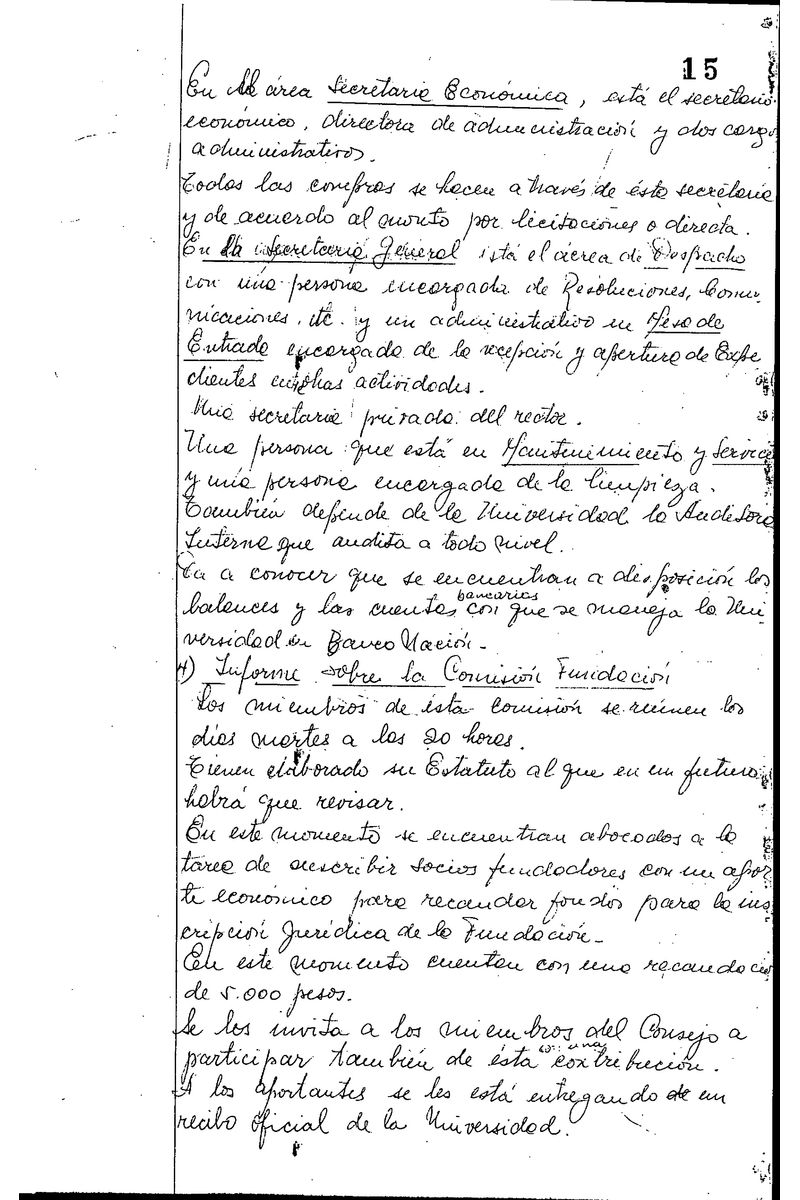 15
En el área Secretaria Económica, está el secretario
económico, directora de administración y dos cargos
administrativos.
Todas las compras se hacen a través de ésta secretaria
y de acuerdo al monto por licitaciones o directa.
En la Secretaria General está el áerea de Despacho
con una persona encargada de Resoluciones, Comu-
nicaciones, etc. y un administrativo en Mesa de
Entrada encargado de la recepción y apertura de Expe
dientes entre otras actividades.
Una secretaria privada del rector.
Una persona que está en Mantenimiento y Service
y una persona encargada de la limpieza.
También depende de la Universidad la Auditora
Interna que audita a todo nivel.
Da a conocer que se encuentran a disposición los
balances y las cuentas bancarias con que se maneja la Uni-
versidad en Banco Nación.-
4) Informe sobre la Comisión Fundación
Los miembros de ésta comisión se reúnen los
días martes a las 20 horas.
Tienen elaborado su Estatuto al que en un futuro
habrá que revisar.
En este momento se encuentran abocados a la
tarea de suscribir socios fundadores con un apor
te económico para recaudar fondos para la ins
cripción Jurídica de la Fundación.-
En este momento cuentan con una recaudación
de 5.000 pesos.
Se los invita a los miembros del Consejo a
participar también de ésta contribución.
A los aportantes se les está entregando un
recibo oficial de la Universidad.